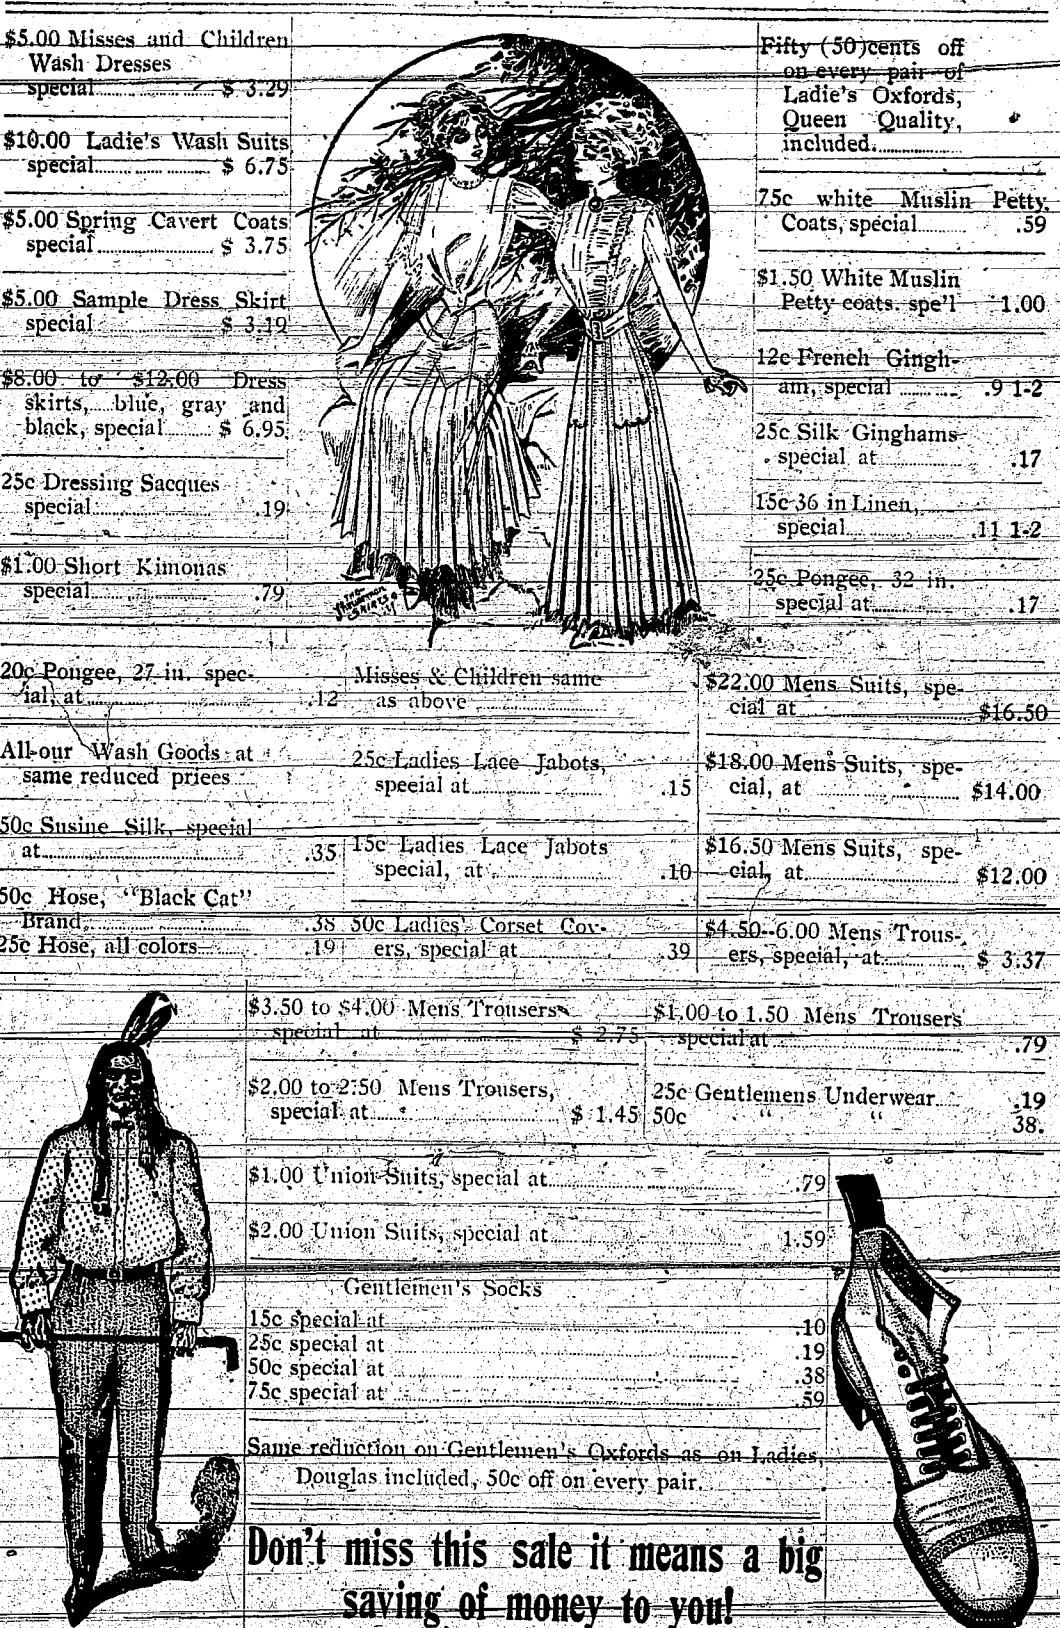 $5.00 Misses and Children
Wash Dresses
special $ 3.29
$10.00 Ladie's Wash Suits
special $ 6.75
$5.00 Spring Cavert Coats
special $ 3.75
$5.00 Sample Dress Skirt
special $ 3.19
$8.00 to $12.00 Dress
skirts, blue, gray and
black, special $ 6.95
25c Dressing Sacques
special .19
$1.00 Short Kimonas
special .79
Fifty (50)cents off
on every pair of
Ladie's Oxfords,
Queen Quality,
included.
75c white Muslin Petty
Coats, special .59
$1.50 White Muslin
Petty coats. spe'l 1.00
12c French Gingh-
am, special .9 1-2
25c Silk Ginghams
special at .17
15c 36 in Linen,
special .11 1-2
25c Pongee, 32 in.
special at .17
20c Pongee, 27 in. spec-
ial, at .12
All our Wash Goods at
same reduced prices
50c Susine Silk, special
at .35
50c Hose, "Black Cat"
Brand .38
25c Hose, all colors .19
Misses & Children same
as above
25c Ladies Lace Jabots,
special at .15
15c Ladies Lace Jabots
special, at .10
50c Ladies' Corset Cov-
ers, special at .39
$22.00 Mens Suits, spe-
cial at $16.50
$18.00 Mens Suits, spe-
cial, at $14.00
$16.50 Mens Suits, spe-
cial, at $12.00
$4.50--6.00 Mens Trous-
ers, special, at $ 3.37
$3.50 to $4.00 Mens Trousers
special at $ 2.75
$1.00 to 1.50 Mens Trousers
special at .79
$2.00 to 2.50 Mens Trousers,
special at $ 1.45
25c Gentlemens Underwear .19
50c " " 38.
$1.00 Union Suits, special at .79
$2.00 Union Suits, special at 1.59
Gentlemen's Socks
15c special at .10
25c special at .19
50c special at .38
75c special at .59
Same reduction on Gentlemen's Oxfords as on Ladies,
Douglas included, 50c off on every pair.
Don't miss this sale it means a big
saving of money to you!